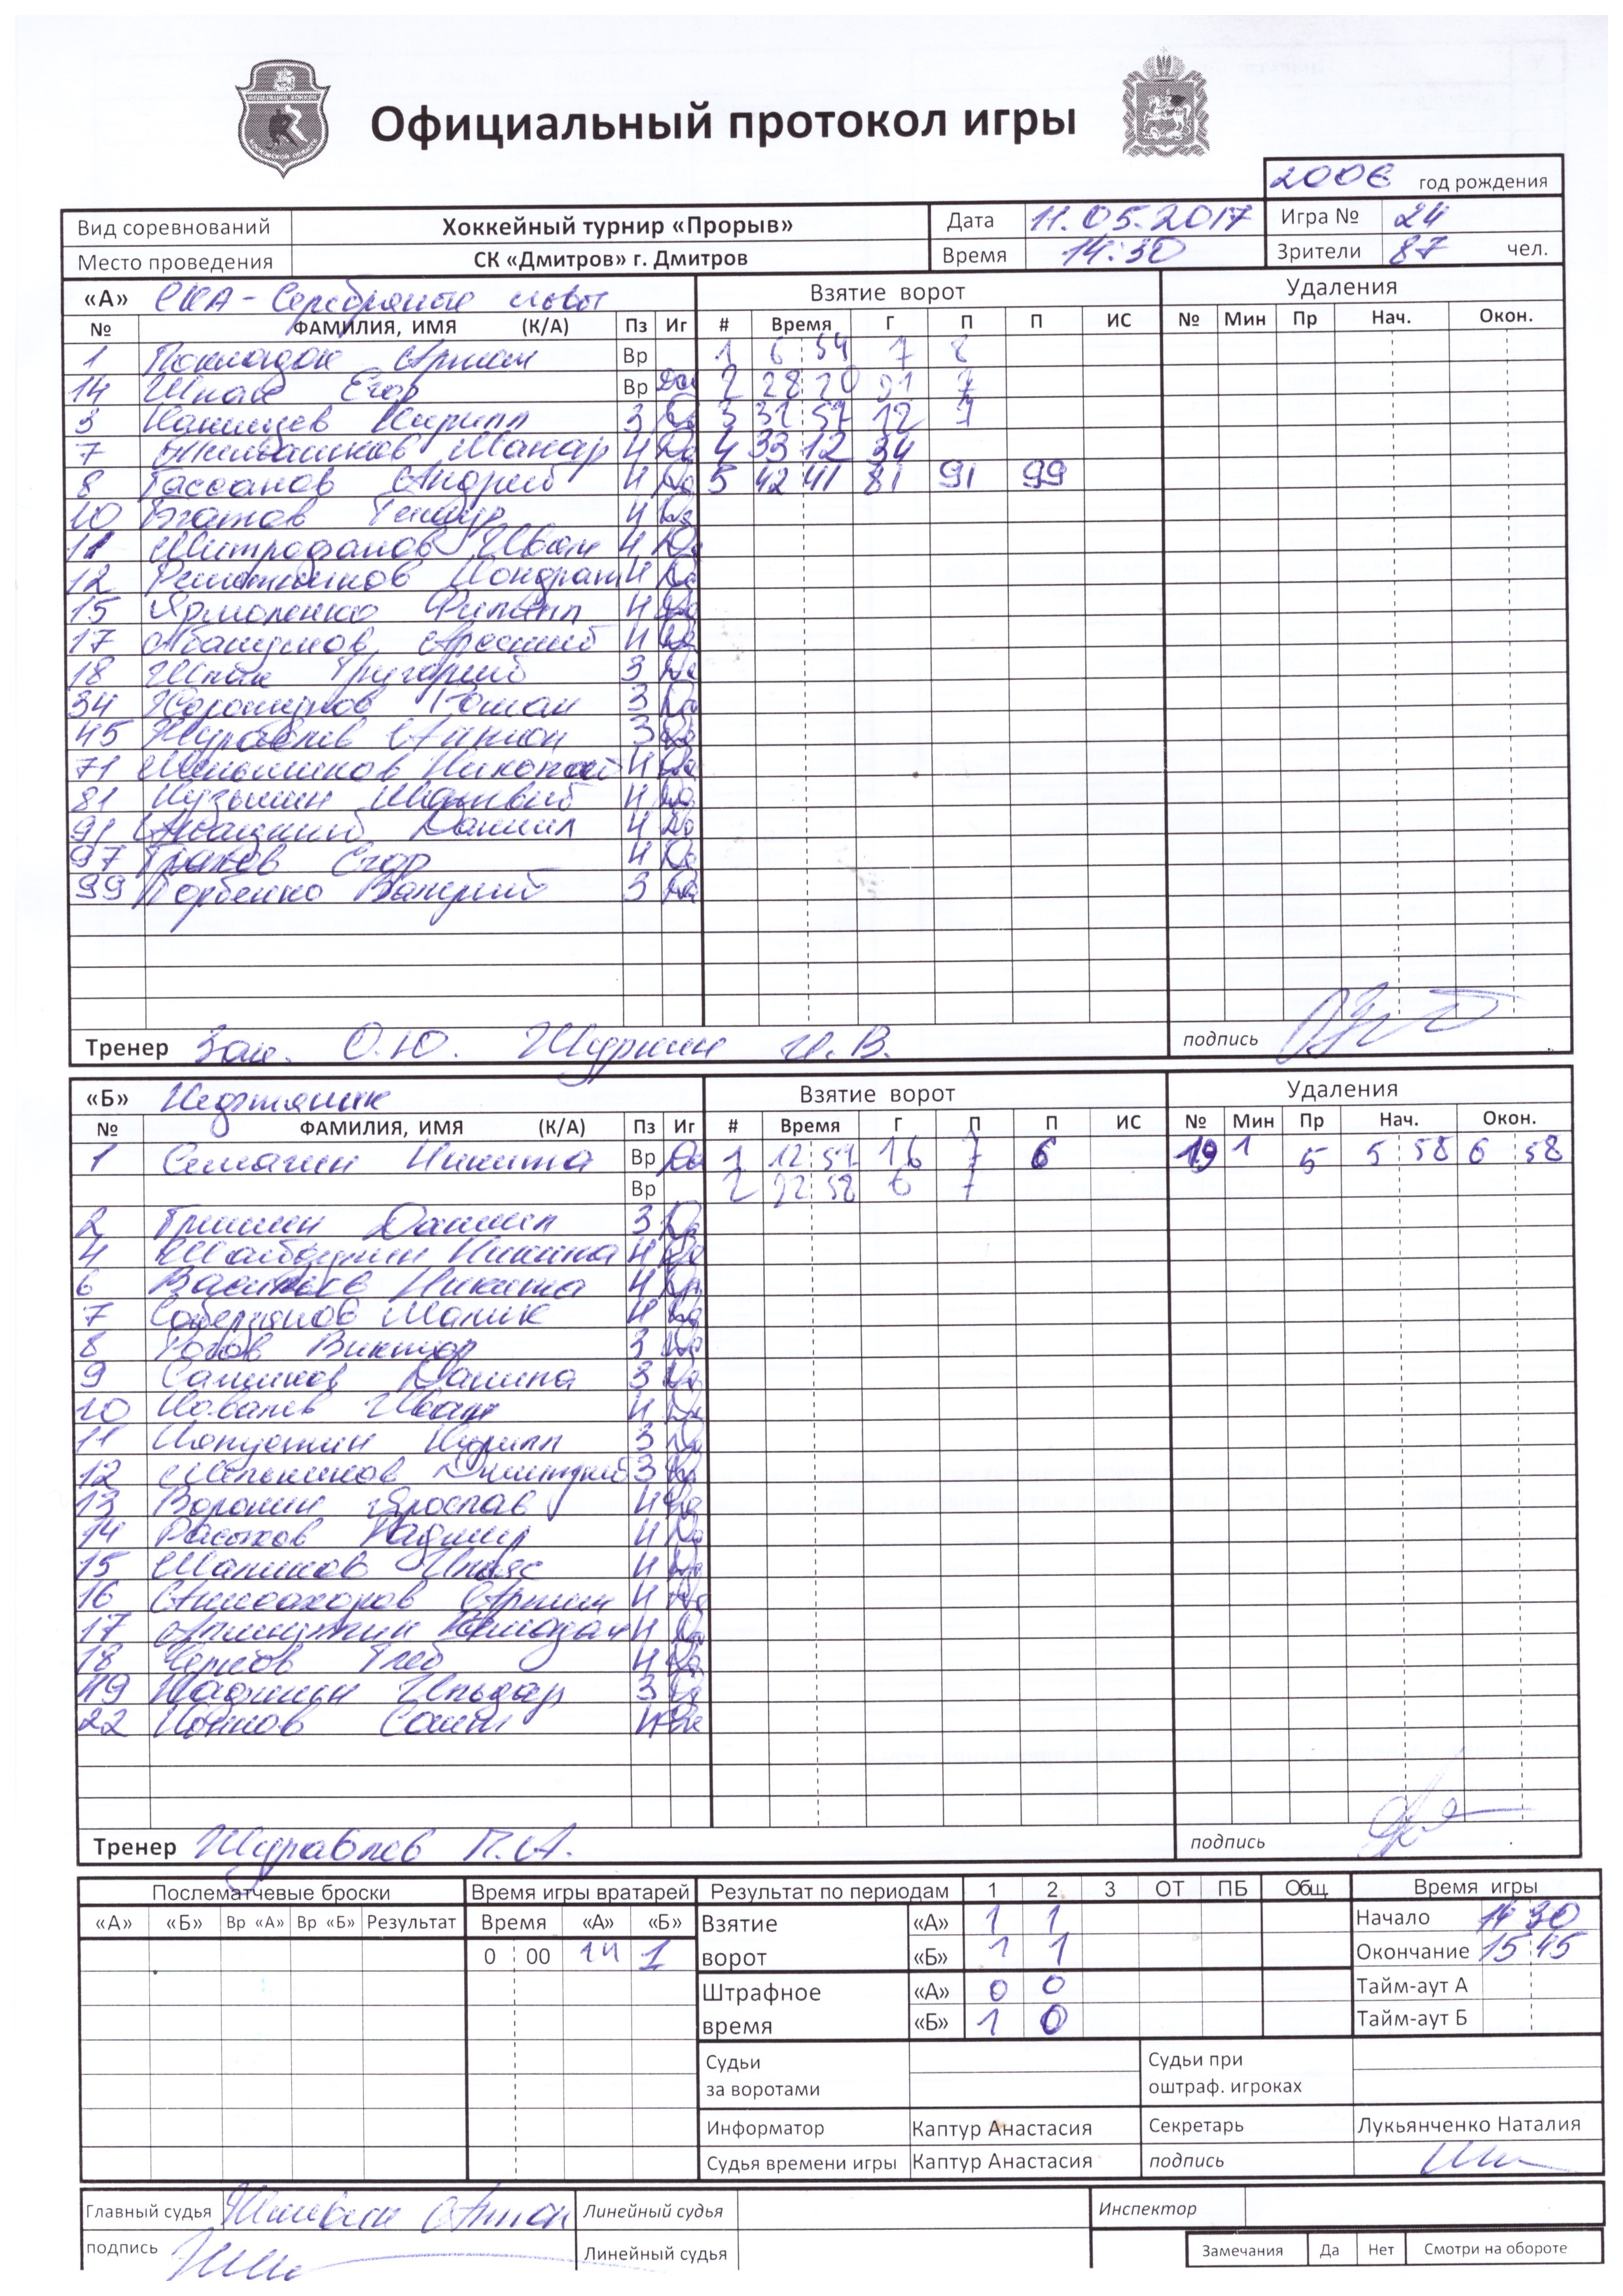 Официальный протокол игры
2006 год рождения
Вид соревнований Хоккейный турнир «Прорыв» Дата 11.05.2017 Игра № 24
Место проведения СК «Дмитров» г. Дмитров Время 14:30 Зрители 87 чел.
«А» СКА - Серебряные львы Взятие ворот Удаления
№ ФАМИЛИЯ, ИМЯ (К/А) Пз Иг # Время Г П П ИС № Мин Пр Нач. Окон.
1 Вр 1 6 54 7 8
14 Шпак Егор Вр Да 2 28 20 91 7
3 Кирилл З Да 3 31 57 12 7
7 Н Да 4 33 12 34
8 Гассанов Андрей Н Да 5 42 41 81 91 99
10 Тимур Н Да
11 Митрофанов Иван Н Да
12 Решетников Кондрат Н Да
15 Ярмоленко Филипп Н Да
17 Абакумов Арсений Н Да
18 Шпак Григорий З Да
34 Роман З Да
45 Журавлев Антон З Да
71 Меньшиков Николай Н Да
81 Кузьмин Матвей Н Да
91 Даниил Н Да
97 Егор Н Да
99 Горбенко Валерий З Да
Тренер Зак. О.Ю. И.В. подпись
«Б» Нефтяник Взятие ворот Удаления
№ ФАМИЛИЯ, ИМЯ (К/А) Пз Иг # Время Г П П ИС № Мин Пр Нач. Окон.
1 Семагин Никита Вр Да 1 12 57 16 7 6 19 1 5 5 58 6 58
Вр 2 22 58 6 7
2 Гришин Даниил З Да
4 Шайбулин Никита Н Да
6 Васильев Никита Н Да
7 Малик Н Да
8 Виктор З Да
9 Сальников Данила З Да
10 Ковалев Иван Н Да
11 Капустин Кирилл З Да
12 Мельников Дмитрий З Да
13 Воронин Ярослав Н Да
14 Н Да
15 Маликов Ильяс Н Да
16 Артем Н Да
17 Н Да
18 Глеб Н Да
19 Ильдар З Да
22 Н Да
Тренер Журавлев П.А. подпись
Послематчевые броски Время игры вратарей Результат по периодам 1 2 3 ОТ ПБ Общ. Время игры
«А» «Б» Вр «А» Вр «Б» Результат Время «А» «Б» Взятие «А» 1 1 Начало 14 30
0 00 14 1 ворот «Б» 1 1 Окончание 15 45
Штрафное «А» 0 0 Тайм-аут А
время «Б» 1 0 Тайм-аут Б
Судьи Судьи при
за воротами оштраф. игроках
Информатор Каптур Анастасия Секретарь Лукьянченко Наталия
Судья времени игры Каптур Анастасия подпись
Главный судья Антон Линейный судья Инспектор
подпись Линейный судья Замечания Да Нет Смотри на обороте